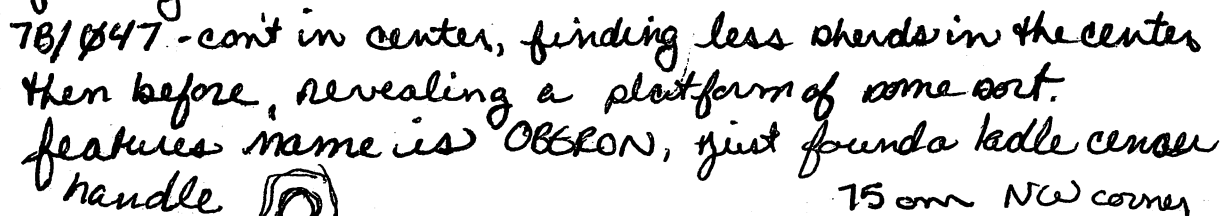 7B/Ø47 - con't in center, finding less sherds in the center
then before, revealing a platform of some sort.
features name is OBERON, just found a ladle censer
handle 75 cm NW corner